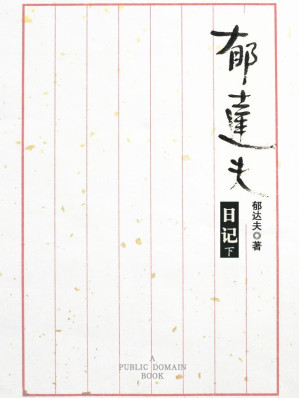 郁達夫
日记 下
郁达夫◎著
A
PUBLIC DOMAIN
BOOK